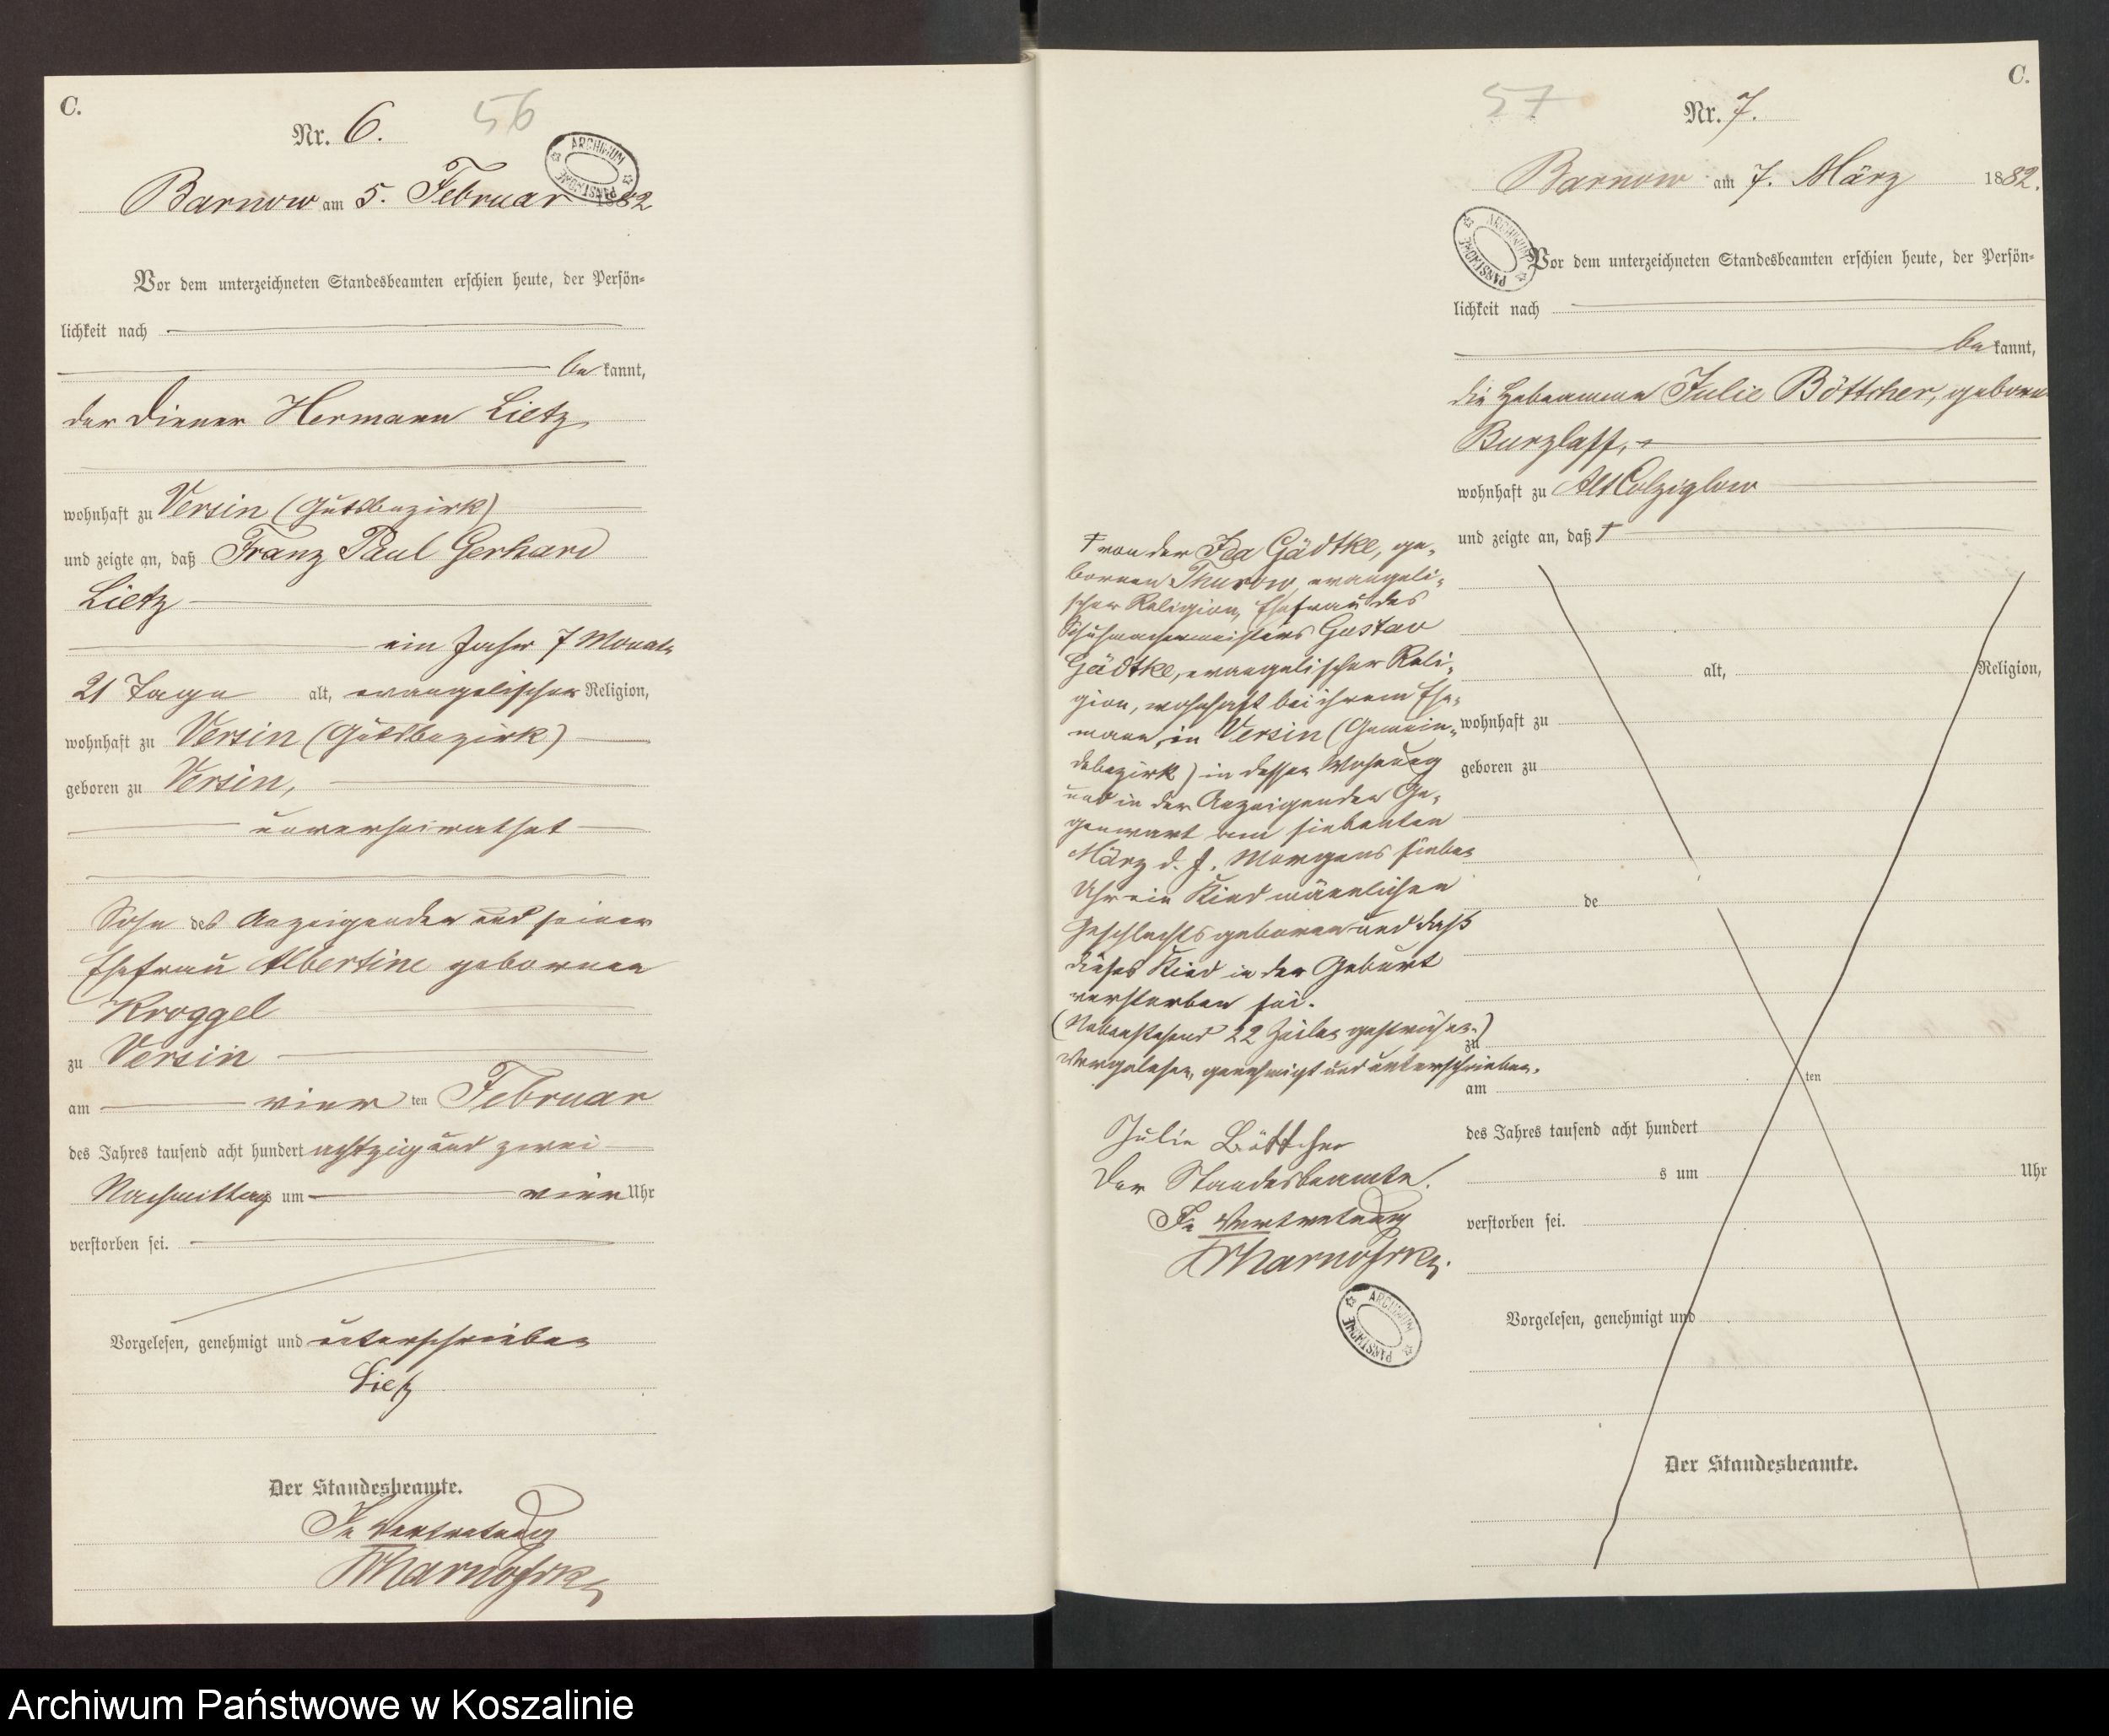 C.
Nr. 6.
56
ARCHIWUM PAŃSTWOWE
Barnow am 5. Februar 1882
Vor dem unterzeichneten Standesbeamten erschien heute, der Persön-
lichkeit nach
be kannt,
der Diener Hermann Lietz
wohnhaft zu Versin (Gutsbezirk)
und zeigte an, daß Franz Paul Gerhard
Lietz
ein Jahr 7 Monate
21 Tage alt, evangelischer Religion,
wohnhaft zu Versin (Gutsbezirk)
geboren zu Versin,
unverheirathet
Sohn des Anzeigenden und seiner
Ehefrau Albertine gebornen
Kroggel
zu Versin
am vier ten Februar
des Jahres tausend acht hundert achtzig und zwei
Nachmittags um vier Uhr
verstorben sei.
Vorgelesen, genehmigt und unterschrieben
Lietz
Der Standesbeamte.
In Vertretung
C.
57
Nr. 7.
Barnow am 7. März 1882.
ARCHIWUM PAŃSTWOWE
Vor dem unterzeichneten Standesbeamten erschien heute, der Persön-
lichkeit nach
be kannt,
die Hebeamme Julie Böttcher, geborne
Burzlaff,
wohnhaft zu Alt Colziglow
und zeigte an, daß †
† von der Ida Gädtke, ge-
bornen Thurow, evangeli-
scher Religion, Ehefrau des
Schuhmachermeisters Gustav
Gädtke, evangelischer Reli-
gion, wohnhaft bei ihrem Ehe-
mann, in Versin (Gemein-
debezirk) in dessen Wohnung
und in der Anzeigenden Ge-
genwart am siebenten
März d. J. Morgens sieben
Uhr ein Kind männlichen
Geschlechts geboren und daß
dieses Kind in der Geburt
verstorben sei.
(Nebenstehend 22 Zeilen gestrichen.)
Vorgelesen, genehmigt und unterschrieben.
Julie Böttcher
Der Standesbeamte.
In Vertretung
ARCHIWUM PAŃSTWOWE
alt, Religion,
wohnhaft zu
geboren zu
de
zu
am ten
des Jahres tausend acht hundert
s um Uhr
verstorben sei.
Vorgelesen, genehmigt und
Der Standesbeamte.
Archiwum Państwowe w Koszalinie